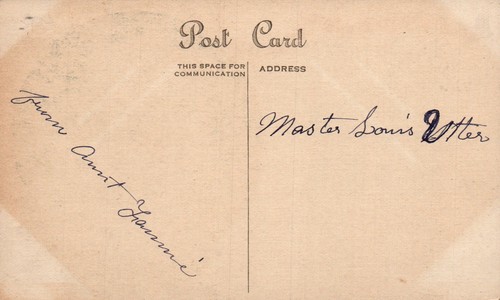 Post Card
THIS SPACE FOR
COMMUNICATION
ADDRESS
from Aunt Fannie
Master Louis Utter